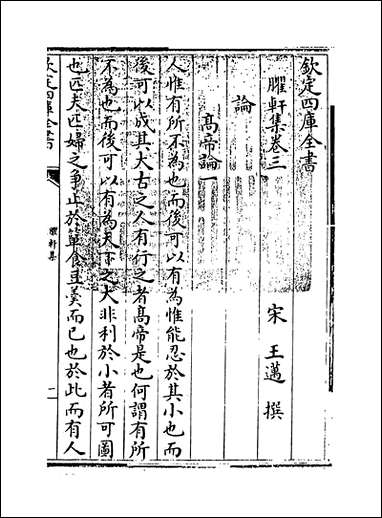 欽定四庫全書
臞軒集卷三
宋 王邁 撰
論
髙帝論
人惟有所不為也而後可以有為惟能忍於其小也而
後可以成其大古之人有行之者髙帝是也何謂有所
不為也而後可以有為天下之大非利於小者所可圖
也匹夫匹婦之争止於簞食豆羮而已也於此而有人
欽定四庫全書
臞軒集